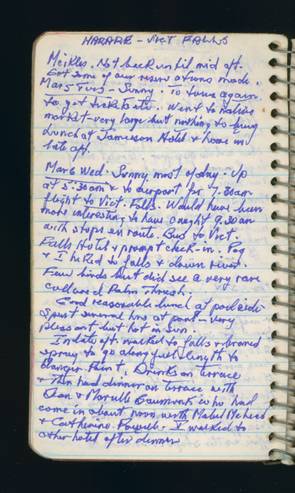 HARARE - VICT FALLS
Meikles. Not back until mid aft.
Got some of our reservations made.
Mar 5 Tues - Sunny. To town again
to get tickets etc. Went to native
market - very large but nothing to buy
Lunch at Jameson Hotel & home in
late aft.
Mar 6 Wed. Sunny most of day. Up
at 5:30am & to airport for 7:30am
flight to Vict. Falls. Would have been
more interesting to have caught 9:30am
with stops en route. Bus to Vict.
Falls Hotel & prompt check-in. Peg
& I hiked to falls & down river.
Few birds but did see a very rare
collared Palm Thrush.
Good reasonable lunch at poolside
Spent several hrs at pool - very
pleasant but hot in sun.
In late aft walked to falls & braved
spray to go along full length to
Danger Point. Drinks on terrace
& then had dinner on terrace with
Dan & who had
come in about noon with Mabel
& Catherine. I walked to
other hotel after dinner